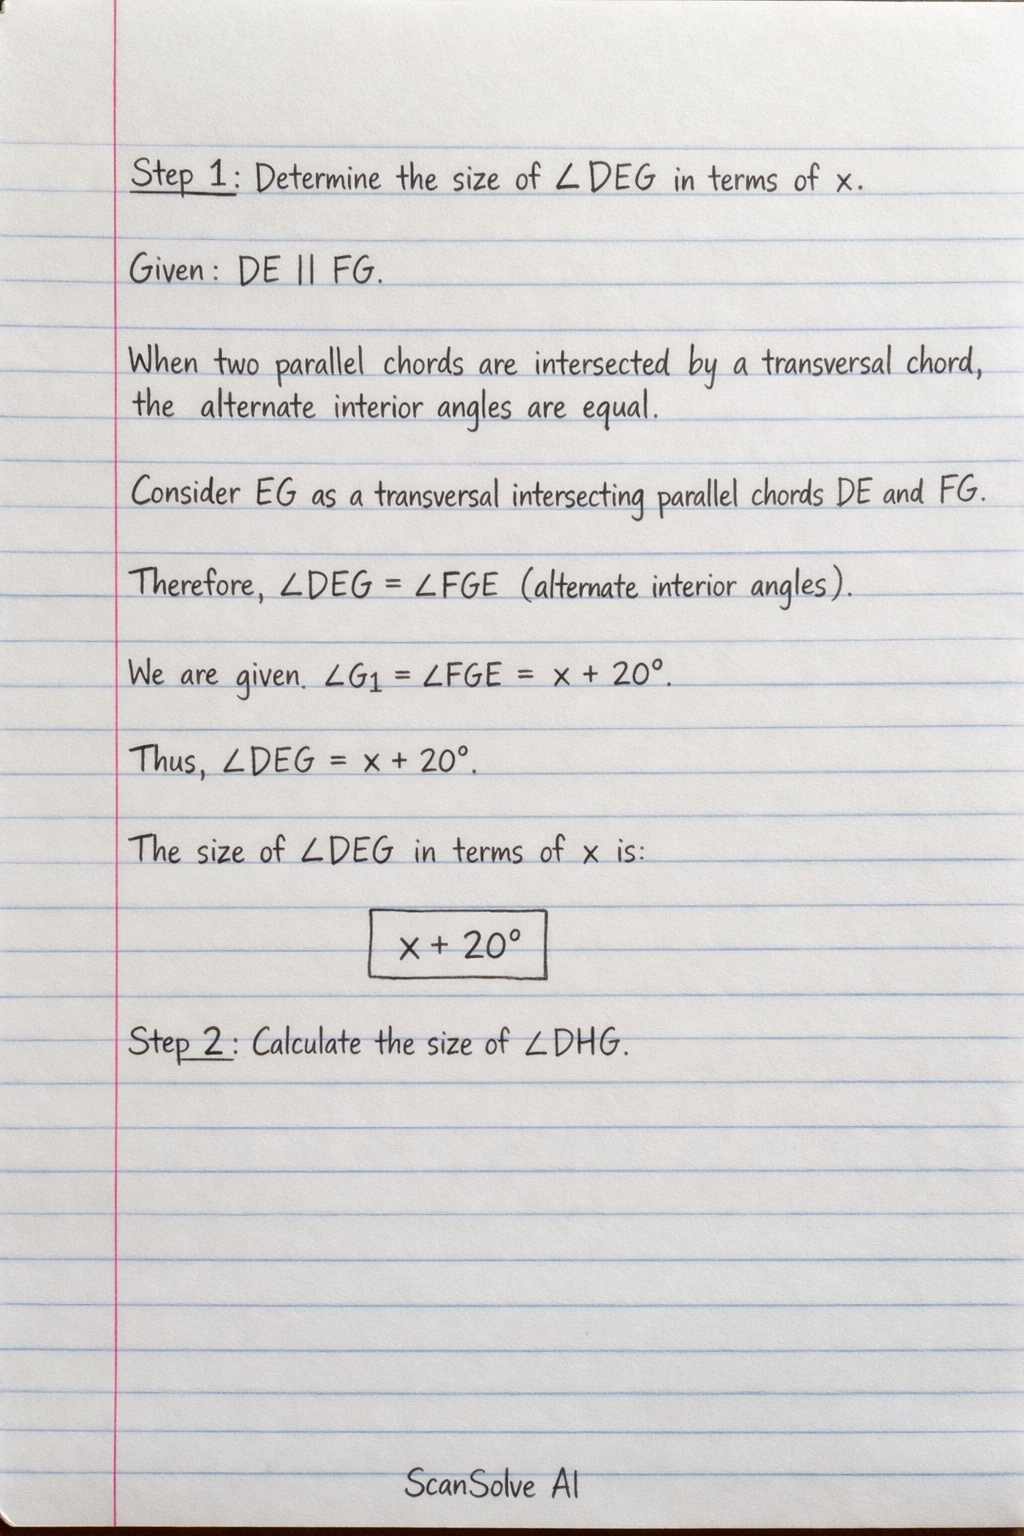 Step 1: Determine the size of ∠DEG in terms of x.
Given: DE || FG.
When two parallel chords are intersected by a transversal chord,
the alternate interior angles are equal.
Consider EG as a transversal intersecting parallel chords DE and FG.
Therefore, ∠DEG = ∠FGE (alternate interior angles).
We are given. ∠G1 = ∠FGE = x + 20°.
Thus, ∠DEG = x + 20°.
The size of ∠DEG in terms of x is:
x + 20°
Step 2: Calculate the size of ∠DHG.
ScanSolve AI